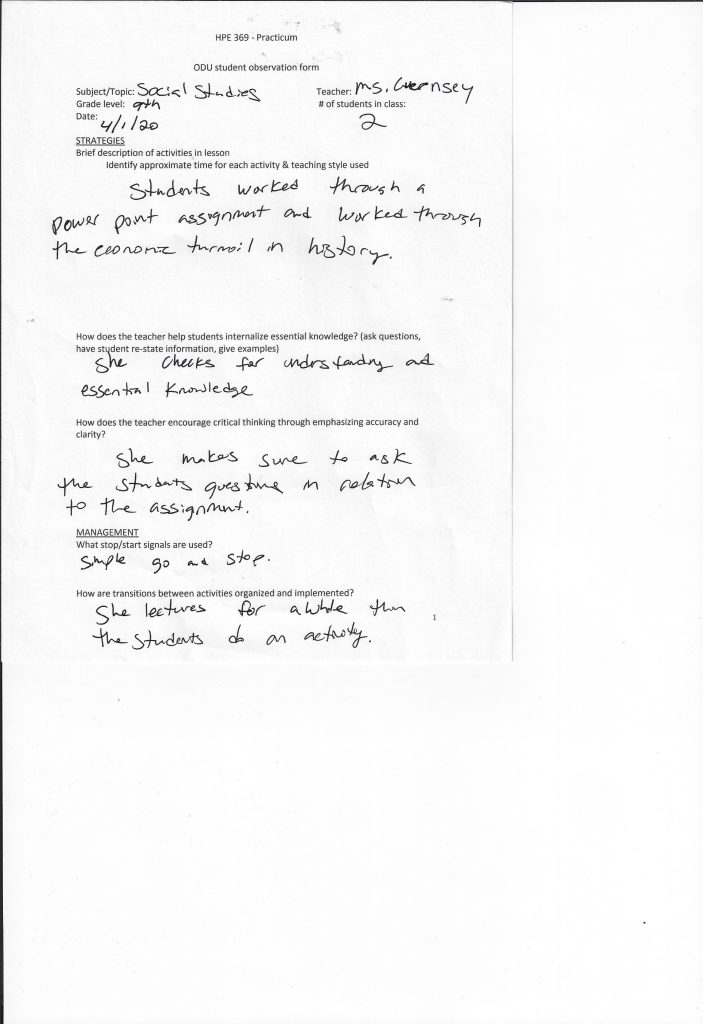 HPE 369 - Practicum
ODU student observation form
Subject/Topic: Social Studies
Teacher: Ms. Guernsey
Grade level: 9th
# of students in class:
Date: 4/1/20
2
STRATEGIES
Brief description of activities in lesson
Identify approximate time for each activity & teaching style used
Students worked through a
power point assignment and worked through
the economic turmoil in history.
How does the teacher help students internalize essential knowledge? (ask questions,
have student re-state information, give examples)
She checks for understanding and
essential knowledge
How does the teacher encourage critical thinking through emphasizing accuracy and
clarity?
She makes sure to ask
the students questions in relation
to the assignment.
MANAGEMENT
What stop/start signals are used?
Simple go and stop.
How are transitions between activities organized and implemented?
She lectures for awhile then
the students do an activity.
1